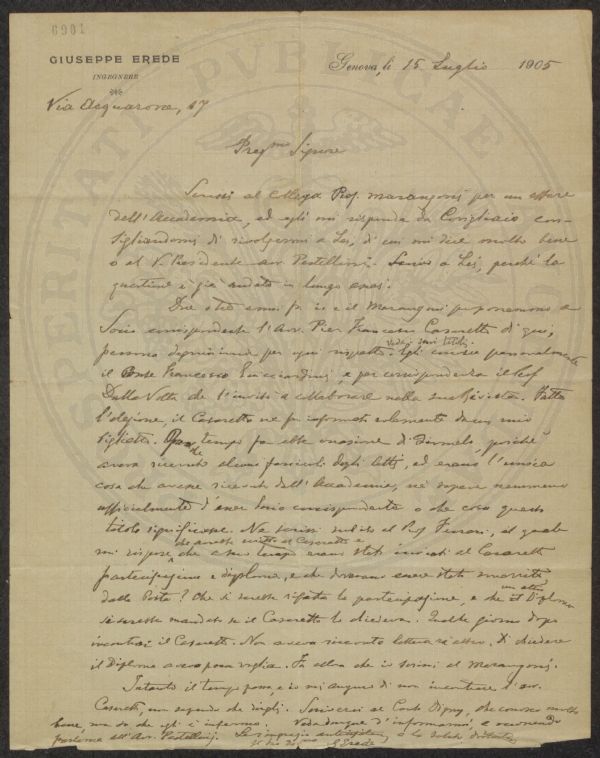 6901
GIUSEPPE EREDE
INGEGNERE
Genova, li 15 Luglio 1905
Via Acquarone, 17
Preg.mo Signore
Scrissi al Collega Prof. Marangoni per un affare
dell'Accademia, ed egli mi risponde da Corigliano con-
sigliandomi di rivolgermi a Lei, di cui mi dice molto bene
o al V. Presidente avv. Pestellini. Scrivo a Lei, perché la
questione è già andata in lungo assai.
Due o tre anni fa io e il Marangoni proponemmo a
Socio corrispondente l'Avv. Pier Francesco Casaretti di qui,
persona degnissima per ogni rispetto. Egli conosce personalmente
vedi i suoi titoli.
il Conte Francesco Guicciardini, e per corrispondenza il Prof
Dalla Volta che l'invitò a collaborare nella sua rivista. Fatta
l'elezione, il Casaretti ne fu informato solamente da un mio
biglietto. tempo fa ebbe occasione di dirmelo, perchè
aveva ricevuto alcuni fascicoli degli Atti, ed erano l'unica
cosa che avesse ricevuto dall'Accademia, né sapeva nemmeno
ufficialmente d'esser Socio corrispondente o che cosa questo
titolo significasse. Ne scrissi subito al Prof. il quale
mi rispose che a suo tempo erano stati inviati al Casaretti
che avrebbe scritto al Casaretti e
partecipazione e diploma, e che dovevano essere stati smarriti
dalla Posta? Che si sarebbe rifatta la partecipazione, e che il Diploma
un altro
si sarebbe mandato se il Casaretti lo chiedeva. Qualche giorno dopo
incontrai il Casaretti. Non aveva ricevuto lettera né altro. Di chiedere
il Diploma aveva poca voglia. Fu allora che io scrissi al Marangoni.
Intanto il tempo passa, e io mi auguro di non incontrare l'avv.
Casaretti, non sapendo che dirgli. Scriverei al Conte Digny, che conosco molto
bene, ma so che egli è infermo. Veda dunque d'informarsi, e occorrendo
parlarne all'Avv. Pestellini. La ringrazio e la saluto distintamente
G Erede